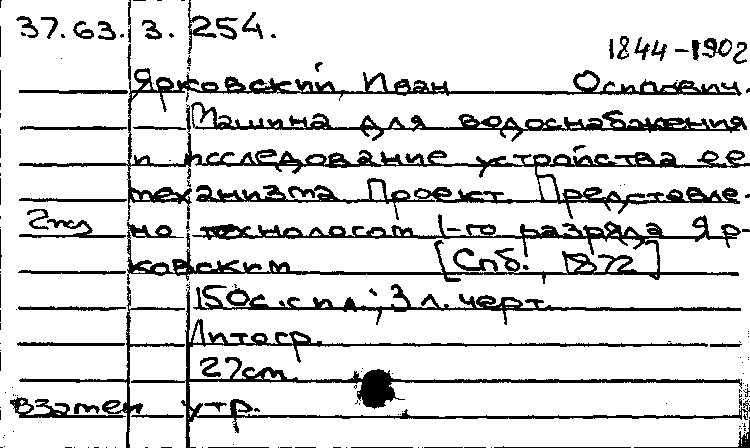 37.63.3.254.
1844-1902
Ярковский, Иван Осипович.
Машина для водоснабжения
и исследование устройства ее
механизма. Проект. Представле-
2 экз
но технологом 1-го разряда Яр-
ковским [Спб., 1872]
150с. с ил.; 3 л. черт.
Литогр.
27см.
взамен утр.